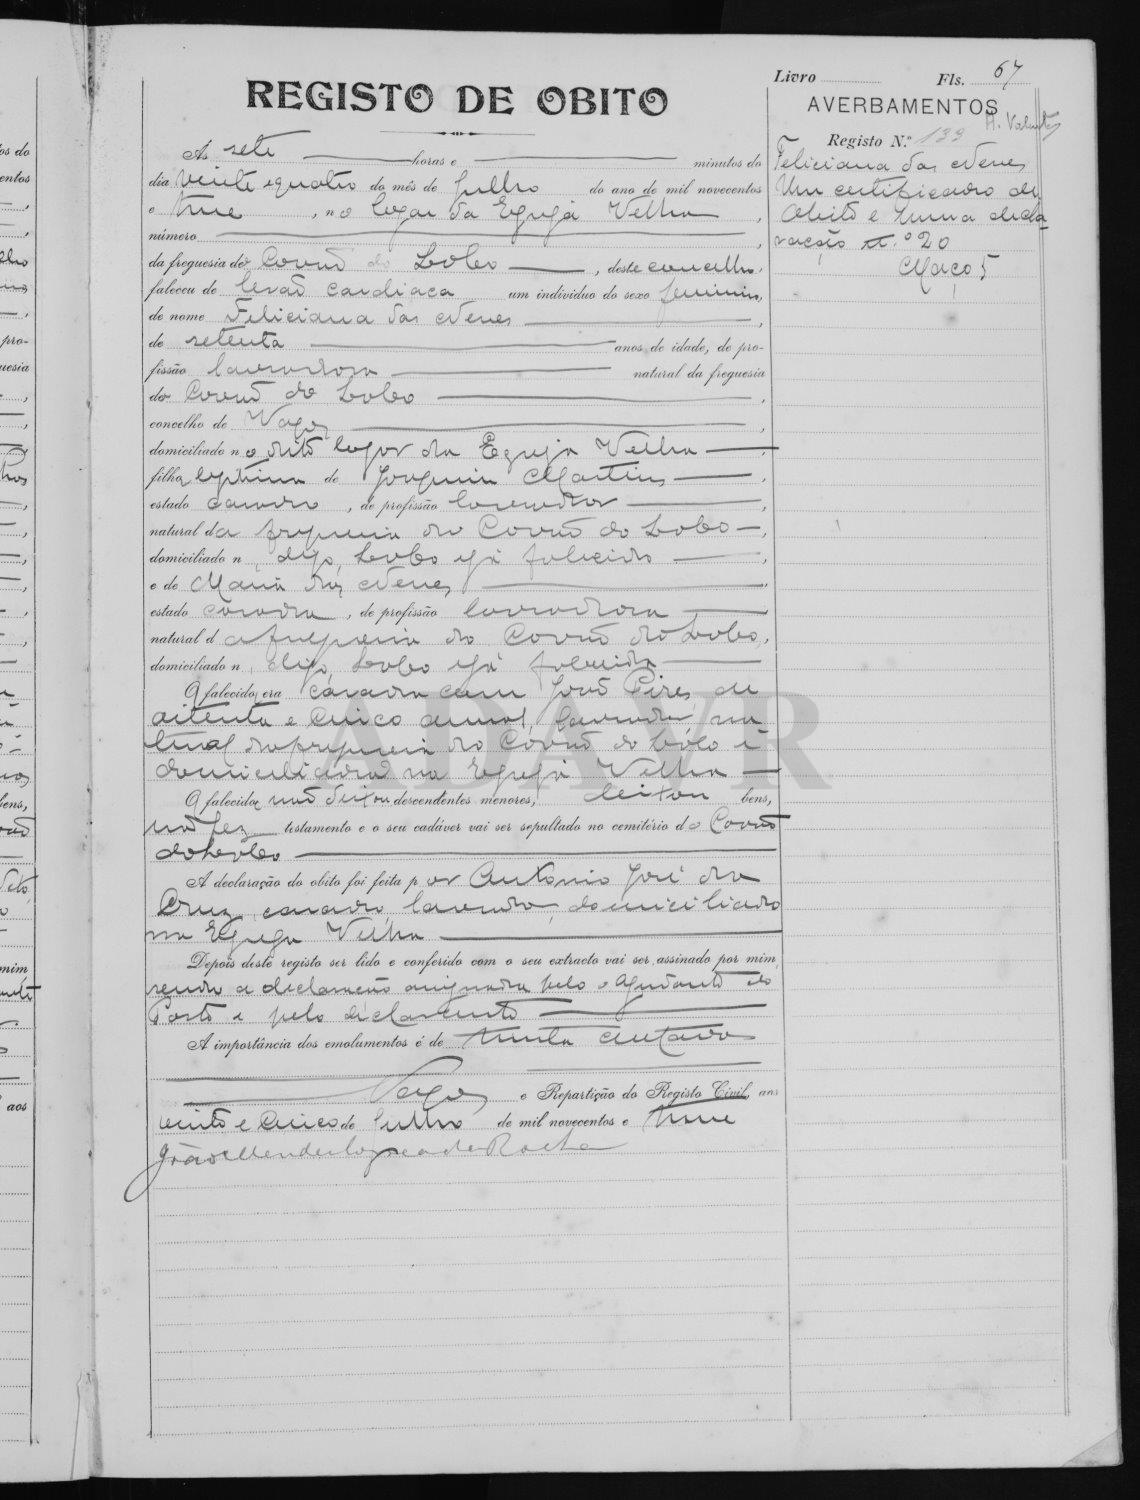 Livro Fls. 67
REGISTO DE OBITO
AVERBAMENTOS
Registo N.º 133
Feliciana das Neves
Um certificado de
obito e huma decla
ração n.º 20
Maço 5
As sete horas e minutos do
dia vinte e quatro do mês de Julho do ano de mil novecentos
e , no logar da Egreja Velha ,
número ,
da freguesia do Covão do Lobo , deste concelho,
faleceu de lesão cardiaca um individuo do sexo feminino,
de nome Feliciana das Neves ,
de setenta anos de idade, de pro-
fissão lavradora natural da freguesia
do Covão do Lobo ,
concelho de Vagos ,
domiciliado no dito logar da Egreja Velha ,
filha legitima de Joaquim Martins ,
estado casado , de profissão lavrador ,
natural da freguesia do Covão do Lobo ,
domiciliado n , digo, Lobo já falecido ,
e de Maria das Neves ,
estado casada , de profissão lavradora ,
natural da freguesia do Covão do Lobo,
domiciliado n , digo, Lobo já falecida
O falecido, era casada com José Pires, de
oitenta e cinco annos, lavrador, na
tural da freguesia do Covão do Lobo e
domiciliado na Egreja Velha
O falecido, não deixou descendentes menores, deixou bens,
não fez testamento e o seu cadáver vai ser sepultado no cemitério do Covão
do Lobo
A declaração do obito foi feita por Antonio José da
Cruz, casado, lavrador, domiciliado
na Egreja Velha
Depois deste registo ser lido e conferido com o seu extracto vai ser assinado por mim,
sendo a declaração assignada pelo ajudante do
Posto e pelo declarante
A importância dos emolumentos é de trinta centavos
Vagos e Repartição do Registo Civil, aos
vinte e cinco de Julho de mil novecentos e
João Mendes da Rocha
ADAVR